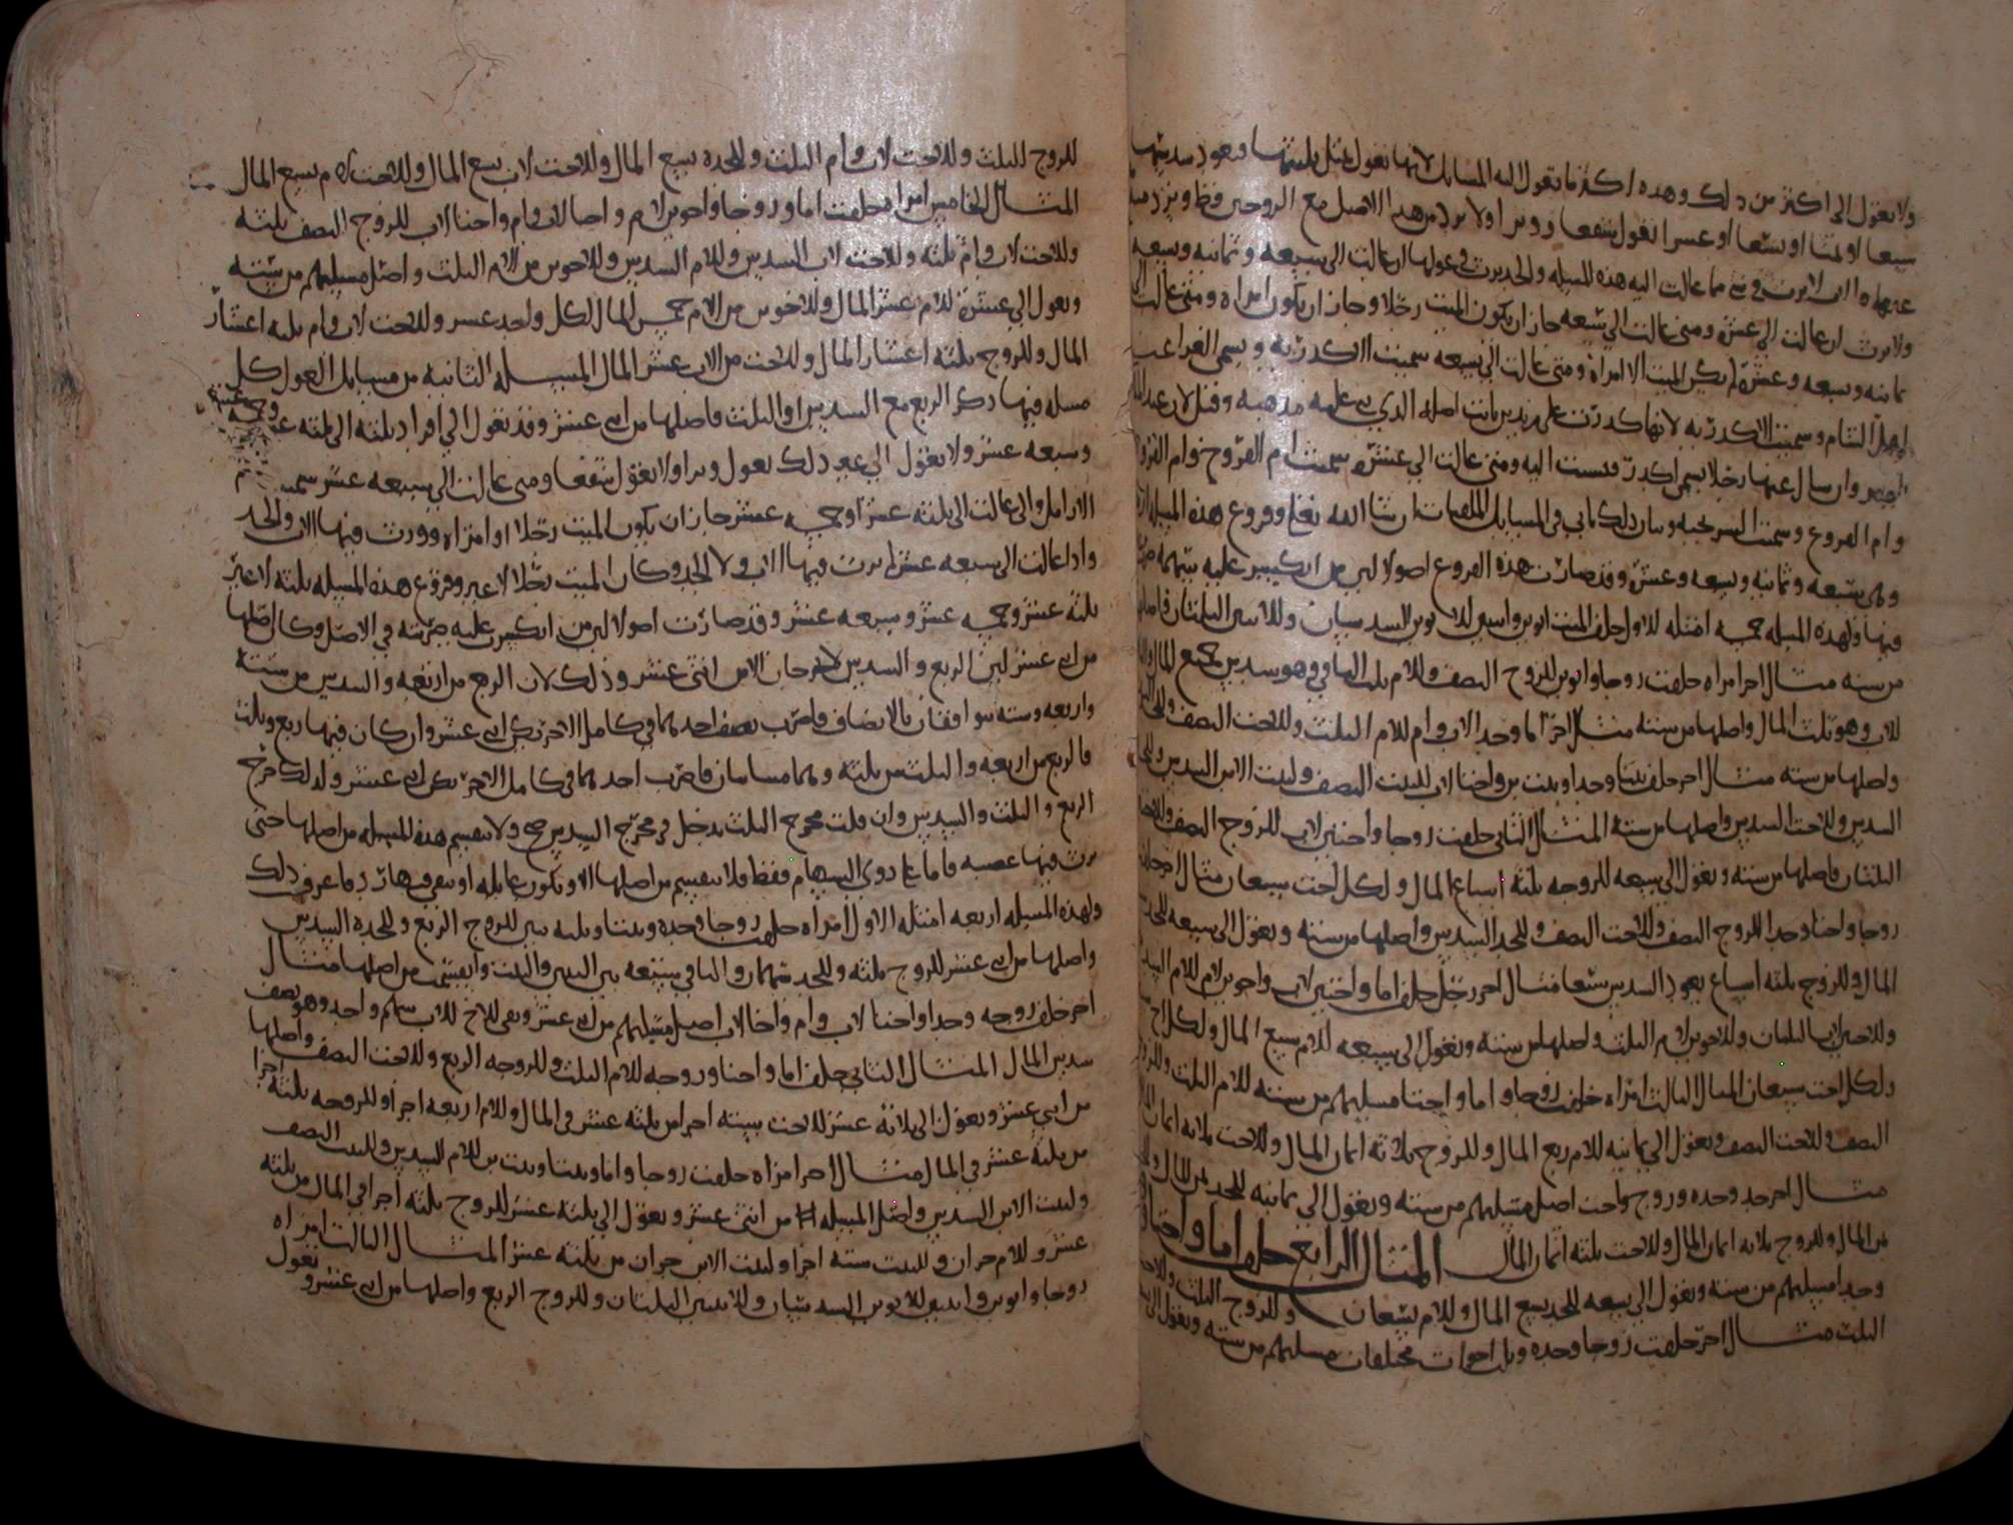 ولا تعول الى اكثر من ذلك وهذه اكثر ما تعول اليه المسايل لانها تعول بمثل ثلثيها وتعود
سبعا او ثمنا او تسعا او عشرا تعول شفعا ووترا ولا يرد من هذا الاصل مع الزوجين فقط
ان الاب لا يرث في شي مما عالت اليه هذه المسيله والجد يرث في عولها ان عالت الى سبعه وثمانيه وتسعه
ولا يرث ان عالت الى عشره ومتى عالت الى سبعه جاز ان يكون الميت رجلا وجاز ان يكون امراه ومتى عالت الى
ثمانيه وتسعه وعشره لم يكن الميت الا امراه ومتى عالت الى تسعه سميت الاكدريه ويسمى الغرا عند
اهل الشام وسميت الاكدريه لانها كدرت على زيد بن ثابت اصله الذي بنى عليه مذهبه وقيل لان عبد الملك
ارسل عنها رجلا يسمى اكدر فنسبت اليه ومتى عالت الى عشره سميت ام الفروخ
وام الفروع وسميت الشريحيه وبيان ذلك ياتي في المسايل الملقبات ان شا الله تعالى وفروع هذه المسيله
وهي سبعه وثمانيه وتسعه وعشره وقد صارت هذه الفروع اصولا لمن انكسر عليه سهمه
فيها ولهذه المسيله خمسه امثله الاول خلف الميت ابوين وابنتين للابوين السدسان وللابنتين الثلثان فاصلها
من سته مثال اخر امراه خلفت زوجا وابوين للزوج النصف وللام ثلث الباقي وهو سدس جميع المال
للاب وهو ثلث المال واصلها من سته مثال اخر اما وجدا لاب وام للام الثلث وللاخت النصف
واصلها من سته مثال اخر خلف بنتا وجدا وبنت بن واختا لاب للبنت النصف ولبنت الابن السدس
السدس وللاخت السدس واصلها من سته المثال الثاني خلفت زوجا واختين لاب للزوج النصف
الثلثان فاصلها من سته وتعول الى سبعه للزوج ثلثه اسباع المال ولكل اخت سبعان مثال اخر
زوجا واختا وجدا للزوج النصف وللاخت النصف وللجد السدس واصلها من سته وتعول الى سبعه للجد
المال وللزوج ثلثه اسباع يعود السدس سبعا مثال اخر رجل خلف اما واختين لاب واخوين لام للام السدس
وللاختين لاب الثلثان وللاخوين لام الثلث واصلها من سته وتعول الى سبعه للام سبع المال ولكل اخ
ولكل اخت سبعان المثال الثالث امراه خلفت زوجا واما واختا مسيلتهم من سته للام الثلث وللزوج
النصف وللاخت النصف وتعول الى ثمانيه للام ربع المال وللزوج ثلاثه اثمان المال وللاخت ثلاثه اثمان
مثال اخر جد وجده وزوج واخت اصل مسيلتهم من سته وتعول الى ثمانيه للجد ثمن المال
ثمن المال وللزوج ثلاثه اثمان المال وللاخت ثلثه اثمان المال المثال الرابع خلف اما واختا
وجدا مسيلتهم من سته وتعول الى تسعه للجد تسع المال وللام تسعان وللزوج الثلث
الثلث مثال اخر خلفت زوجا وجده وثلث اخوات مختلفات مسيلتهم من سته وتعول الى
للزوج الثلث وللاخت لاب وام الثلث وللجده تسع المال وللاخت لاب تسع المال وللاخت لام تسع المال
المثال الخامس امراه خلفت اما وزوجا واخوين لام واختا لاب وام واختا لاب للزوج النصف ثلثه
وللاخت لاب وام ثلثه وللاخت لاب السدس وللام السدس وللاخوين من الام الثلث واصل مسيلتهم من سته
وتعول الى عشره للام عشر المال وللاخوين من الام خمس المال لكل واحد عشر وللاخت لاب وام ثلثه اعشار
المال وللزوج ثلثه اعشار المال وللاخت من الاب عشر المال المسيله الثانيه من مسايل العول كل
مسله فيها ذكر الربع مع السدس او الثلث فاصلها من اثنى عشر وقد تعول الى افراد ثلثه الى ثلثه عشر وخمسه عشر
وسبعه عشر ولا تعول الى غير ذلك تعول وترا ولا تعول شفعا ومتى عالت الى سبعه عشر سميت ام
الارامل والى عالت الى ثلثه عشر او خمسه عشر جاز ان يكون الميت رجلا او امراه وورث فيها الاب والجد
واذا عالت الى سبعه عشر لم يرث فيها الاب ولا الجد وكان الميت رجلا لا غير وفروع هذه المسيله ثلثه لا غير
ثلثه عشر وخمسه عشر وسبعه عشر وقد صارت اصولا لمن انكسر عليه ضربته في الاصل وكان اصلها
من اثنى عشر لان الربع والسدس لا يخرجان الا من اثنى عشر وذلك لان الربع من اربعه والسدس من سته
واربعه وسته يتوافقان بالانصاف فاضرب نصف احدهما في كامل الاخر يكن اثنى عشر وان كان فيها ربع وثلث
فالربع من اربعه والثلث من ثلثه وهما متباينان فاضرب احدهما في كامل الاخر يكن اثنى عشر ولذلك خرج
الربع والثلث والسدس وان قلت مخرج الثلث يدخل في مخرج السدس صح ولا تنقسم هذه المسيله من اصلها حتى
يرث فيها عصبه فاما على ذوي السهام فقط فلا تنقسم من اصلها الا وتكون عايله او ينقص هاؤد فاعرف ذلك
ولهذه المسيله اربعه امثله الاول امراه خلفت زوجا وجده وبنتا وثلثه بنين للزوج الربع وللجده السدس
واصلها من اثنى عشر للزوج ثلثه وللجده سهمان والباقي سبعه بين البنين والبنت وانقسمت من اصلها مثال
اخر خلف زوجه وجدا واختا لاب وام واخا لاب اصل مسيلتهم من اثنى عشر وبقي للاخ للاب سهم واحد وهو نصف
سدس المال المثال الثاني خلف اما واختا وزوجه للام الثلث وللزوجه الربع وللاخت النصف واصلها
من اثني عشر وتعول الى ثلاثه عشر للاخت سته اجزا من ثلثه عشر في المال وللام اربعه اجزا وللزوجه ثلثه اجزا
من ثلثه عشر في المال مثال اخر امراه خلفت زوجا واما وبنتا وبنت بن للام السدس وللبنت النصف
ولبنت الابن السدس واصل المسيله من اثنى عشر وتعول الى ثلثه عشر للزوج ثلثه اجزا في المال من ثلثه
عشر وللام جزان وللبنت سته اجزا ولبنت الابن جزان من ثلثه عشر المثال الثالث امراه
زوجا وابوين وابنتين للابوين السدسان وللابنتين الثلثان وللزوج الربع واصلها من اثنى عشر وتعول